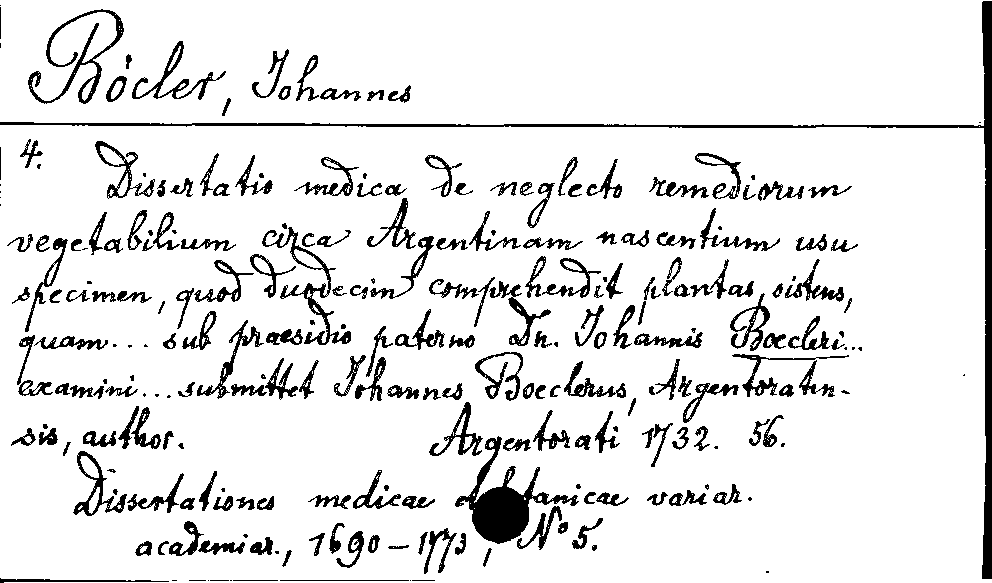 Böcler, Johannes
4.
Dissertatio medica de neglecto remediorum
vegetabilium circa Argentinam nascentium usu
specimen, quod duodecim comprehendit plantas, sistens,
quam... sub praesidio paterno Dn. Johannis Boecleri...
examini... submittet Johannes Boeclerus, Argentoratin-
sis, author. Argentorati 1732. 56.
Dissertationes medicae variar.
academiar., 1690-1773, Nº 5.